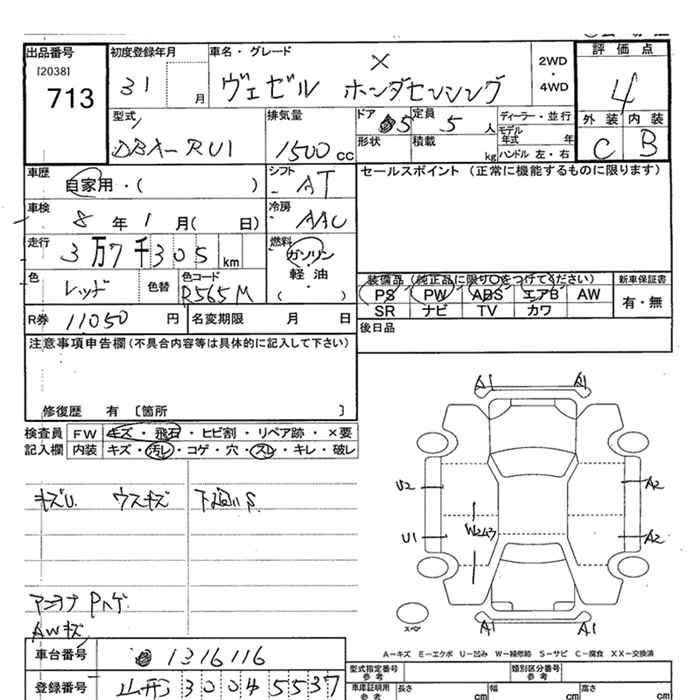 出品番号 初度登録年月 車名・グレード 2WD・4WD 評価点
[2038]
713 31 月 ヴェゼル X ホンダセンシング 4
型式 排気量 ドア 定員 ディーラー・並行 外装 内装
DBA-RU1 1500 cc 5 5人 モデル年式 年 C B
形状 積載 kg ハンドル 左・右
車歴 自家用・( ) シフト AT セールスポイント (正常に機能するものに限ります)
車検 8年1月( 日) 冷房 AAC
走行 3万7千305km 燃料 ガソリン
軽・油
( )
色 レッド 色替 色コード R565M
装備品 (純正品に限り○をつけてください) 新車保証書
PS PW ABS エアB AW 有・無
SR ナビ TV カワ
R券 11050円 名変期限 月 日 後日品
注意事項申告欄 (不具合内容等は具体的に記入して下さい)
修復歴 有 [箇所 ]
検査員 FW キズ・飛石・ヒビ割・リペア跡・×要
記入欄 内装 キズ・汚レ・コゲ・穴・スレ・キレ・破レ
A1 A1
U2 A2
W2
U1 A2
キズU. ウスキズ 下廻りS
アンテナ Pハゲ
AWキズ
スペア
A1 A1
A-キズ E-エクボ U-凹み W-補修跡 S-サビ C-腐食 XX-交換済
車台番号 1316116
型式指定番号 参考 類別区分番号 参考
登録番号 山形 300 4 5537
車庫証明用 参考 長さ cm 幅 cm 高さ cm